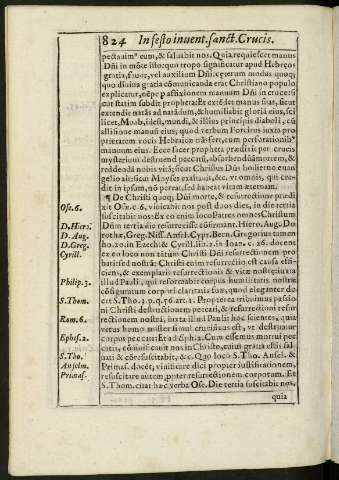 824 In festo invent. sanct. Crucis.
pectauimꝰ eum, & saluabit nos. Quia requiescet manus
Dñi in mõte isto: quo tropo significatur apud Hebręos
gratia, fauor, vel auxilium Dñi: cęterum modus quoq;
quo diuina gratia cõmunicãda erat Christiano populo
explicatur, nẽpe p affixionem manuum Dñi in cruce: si
cut statim subdit propheta: Et extẽdet manus suas, sicut
extendit natãs ad natãdum, & humiliabit gloriã eius, sci
licet, Moab, idest, mundi, & illius principis diaboli, cũ
allisione manus eius, quod verbum Forcirius iuxta pro
prietatem vocis Hebraicæ trãsfert, cum perforationibꝰ
manuum eius. Ecce sicer propheta prædixit per crucis
mysterium destruend peccatũ, absorbendũ mortem, &
reddendã nobis vitã; sicut Christus Dñs hodierno euan
gelio ait: sicut Moyses exaltauit, &c. vt omnis, qui cre
dit in ipsum, nõ pereat, sed habeat vitam æternam.
¶ De Christi quoq; Dñi morte, & resurrectione prædi
xit Ose. c. 6. viuicabit nos post duos dies, in die tertia
suscitabit nos: Ex eo enim loco Patres nostri Christum
Dñm tertia die resurrexisse cõfirmant. Hiero. Aug. Do
rothæ, Greg. Niss. Ansel. Cyp. Bern. Gregorius tamen
ho. 20. in Ezech. & Cyrill. lib. 2. in Ioan. c. 26. docent
ex eo loco non tantum Christi Dñi resurrectionem pro
bari: sed nostrã: Christi enim resurrectio est causa effi
ciens, & exemplaris resurrectionis & vitæ nostrę: iuxta
illud Pauli, qui reformabit corpus humilitatis nostræ
cõfiguratum corpori claritatis suæ, quod eleganter do
cet S. Tho. 3. p. q. 56. art. 2. Propterea tribuimus passio
ni Christi destructionem peccati, & resurrectioni resur
rectionem nostrã, iuxta illud Pauli hoc scientes, quia
vetus homo noster simul crucifixus est, vt destruatur
corpus peccati: Et ad Ephes. 2. Cum essemus mortui pec
catis, cõuiuificauit nos in Christo, cuius gratia estis sal
uati & cõresuscitabit, &c. Quo loco S. Tho. Ansel. &
Primas. docẽt, viuificare dici propter iustificationem,
resuscitare autem propter resurrectionem corporum. Et
S. Thom. citat hæc verba Ose. Die tertia suscitabit nos,
quia
Ose. 6.
D. Hiero.
D. Aug.
D. Greg.
Cyrill.
Philip. 3.
S. Thom.
Rom. 6.
Ephes. 2.
S. Tho.
Anselm.
Primas.